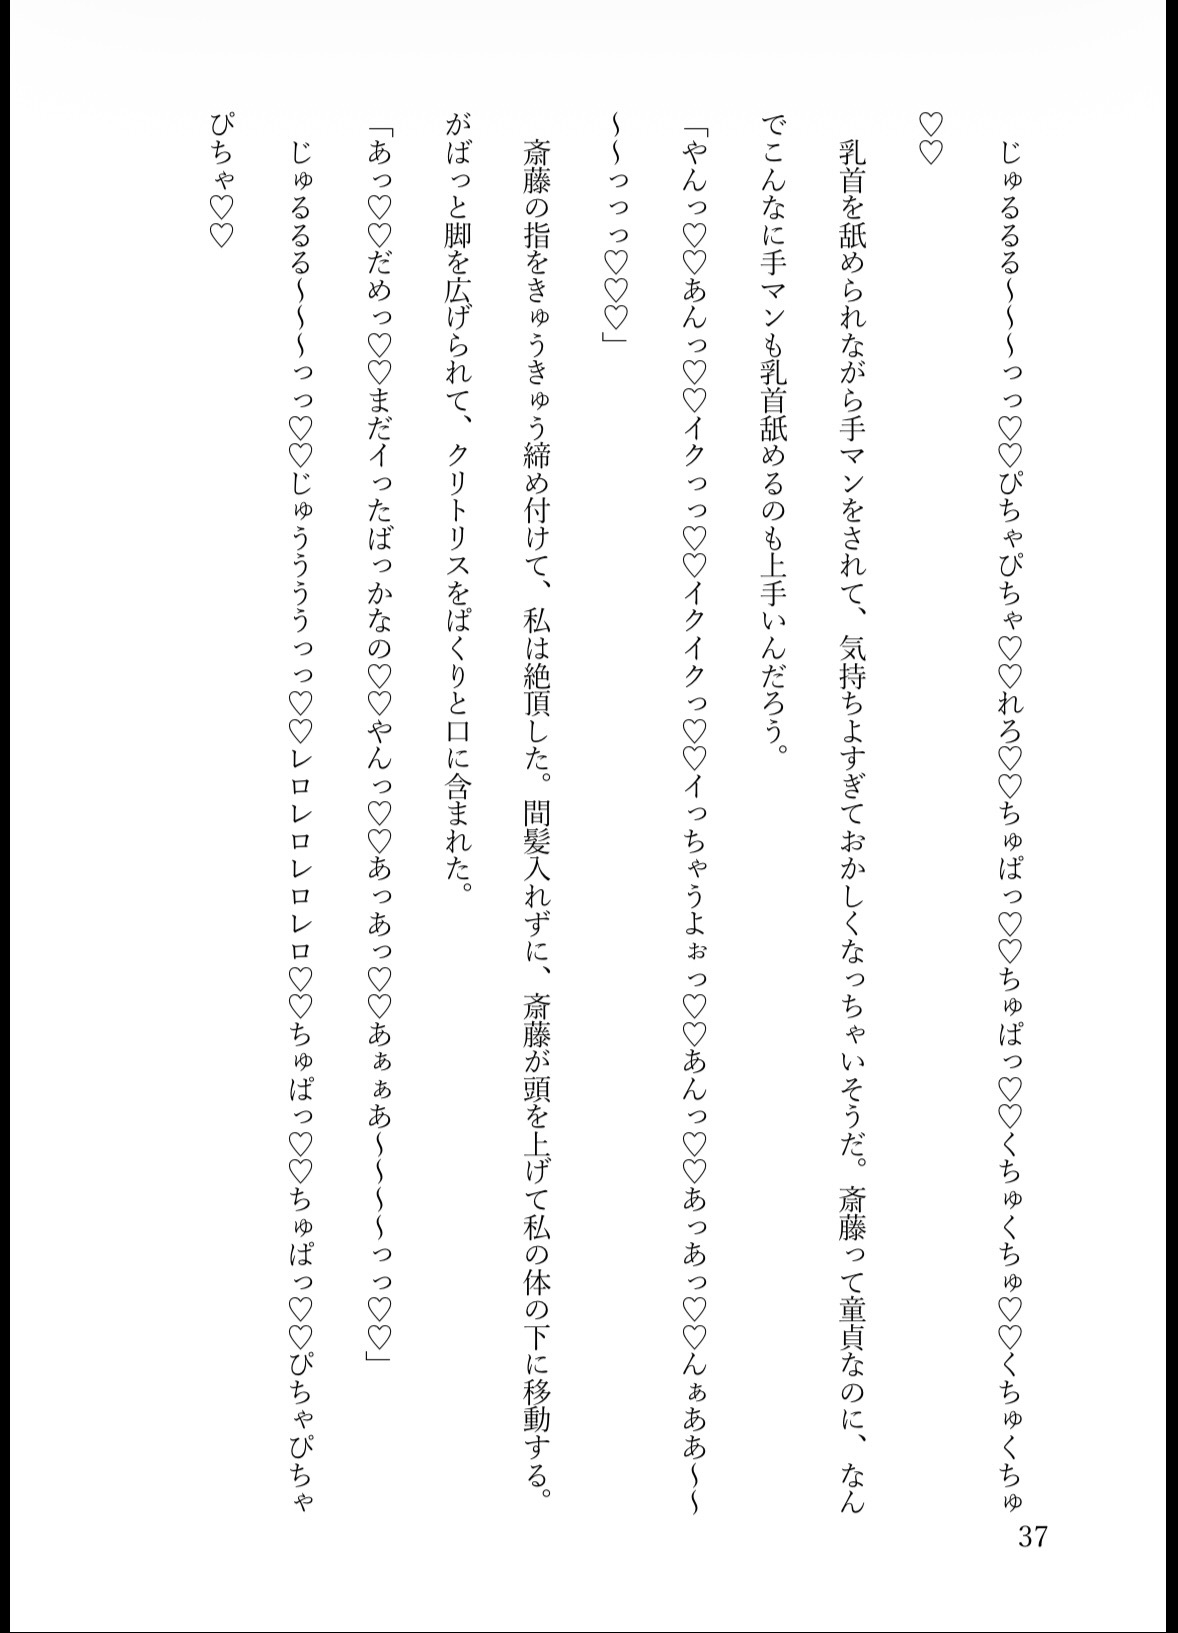 じゅるるる～～～っっ♡♡ぴちゃぴちゃ♡♡れろ♡♡ちゅぱっ♡♡ちゅぱっ♡♡くちゅくちゅ♡♡くちゅくちゅ
♡♡
乳首を舐められながら手マンをされて、気持ちよすぎておかしくなっちゃいそうだ。斎藤って童貞なのに、なん
でこんなに手マンも乳首舐めるのも上手いんだろう。
「やんっ♡♡あんっ♡♡イクっっ♡♡イクイクっ♡♡イっちゃうよぉっ♡♡あんっ♡♡あっあっ♡♡んぁああ～～
～～っっっ♡♡♡」
斎藤の指をきゅうきゅう締め付けて、私は絶頂した。間髪入れずに、斎藤が頭を上げて私の体の下に移動する。
がばっと脚を広げられて、クリトリスをぱくりと口に含まれた。
「あっ♡♡だめっ♡♡まだイったばっかなの♡♡やんっ♡♡あっあっ♡♡あぁぁあ～～～～っっ♡♡」
じゅるるる～～～っっ♡♡じゅうううぅっっ♡♡レロレロレロレロ♡♡ちゅぱっ♡♡ちゅぱっ♡♡ぴちゃぴちゃ
ぴちゃ♡♡
37